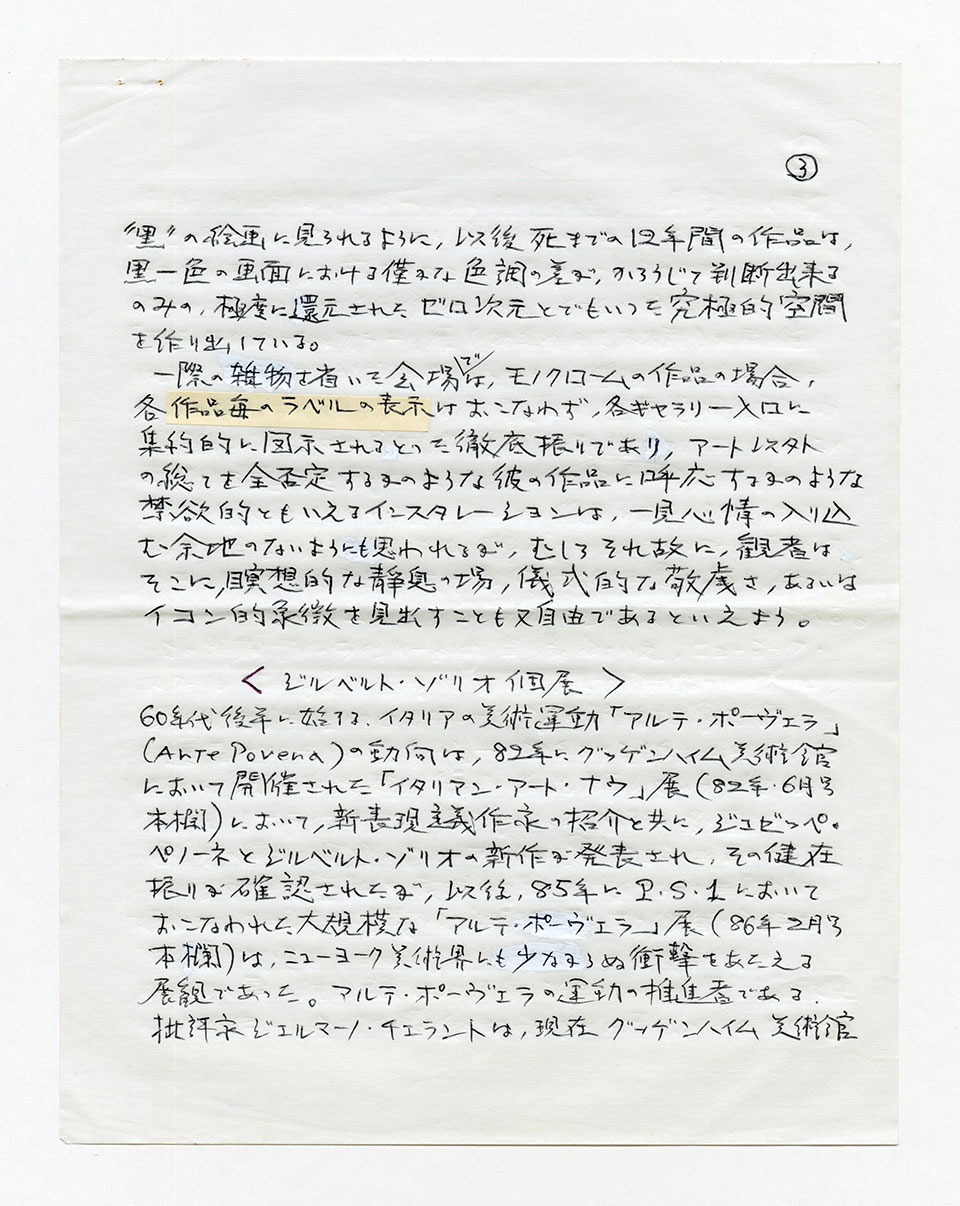 ③
"黒"の絵画に見られるように, 以後死までの12年間の作品は,
黒一色の画面における僅かな色調の差が, かろうじて判断出来る
のみの, 極度に還元されたゼロ次元とでもいった究極的空間
を作り出している。
一際の雑物を省いた会場では, モノクロームの作品の場合,
各作品毎のラベルの表示はおこなわず, 各ギャラリー入口に
集約的に図示されるといった徹底振りであり, アート以外
の総てを全否定するかのような彼の作品に呼応するかのような
禁欲的ともいえるインスタレーションは, 一見心情の入り込
む余地のないようにも思われるが, むしろそれ故に, 観者は
そこに, 瞑想的な静思の場, 儀式的な敬虔さ, あるいは
イコン的象徴を見出すことも又自由であるといえよう。
〈 ジルベルト・ゾリオ個展 〉
60年代後半に始まる, イタリアの美術運動「アルテ・ポーヴェラ」
(Arte Povera)の動向は, 82年にグッゲンハイム美術館
において開催された「イタリアン・アート・ナウ」展(82年・6月号
本欄)において, 新表現主義作家の紹介と共に, ジュゼッペ・
ペノーネとジルベルト・ゾリオの新作が発表され, その健在
振りが確認されたが, 以後, 85年にP.S.1において
おこなわれた大規模な「アルテ・ポーヴェラ」展(86年2月号
本欄)は, ニューヨーク美術界にも少なからぬ衝撃をあたえる
展観であった。アルテ・ポーヴェラの運動の推進者である,
批評家ジェルマーノ・チェラントは, 現在グッゲンハイム美術館